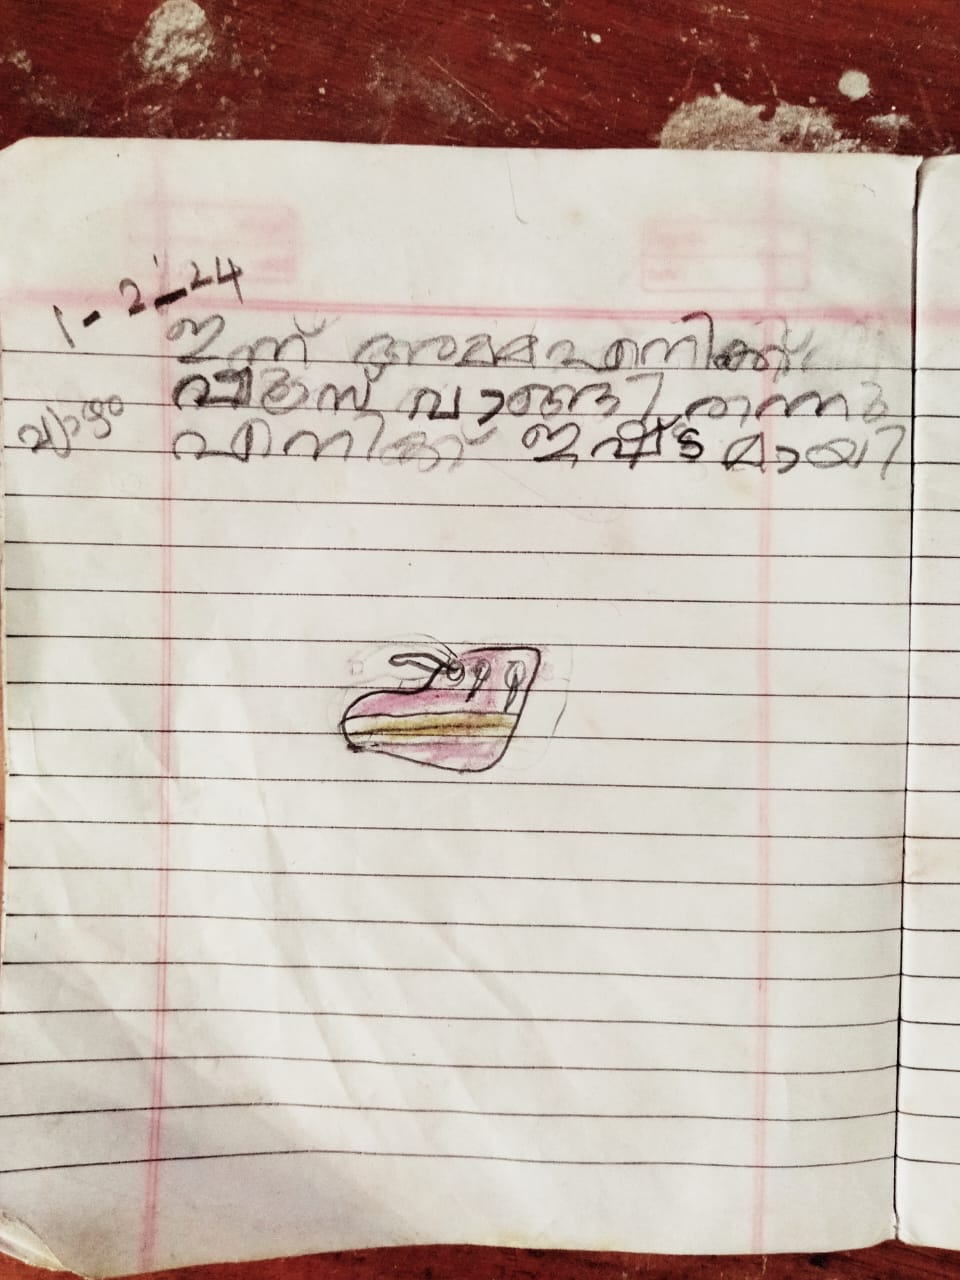 1-2-24
ഇന്ന് അമ്മ എനിക്ക്
വാങ്ങി തന്നു
വ്യാഴം
എനിക്ക് ഇഷ്ട മായി